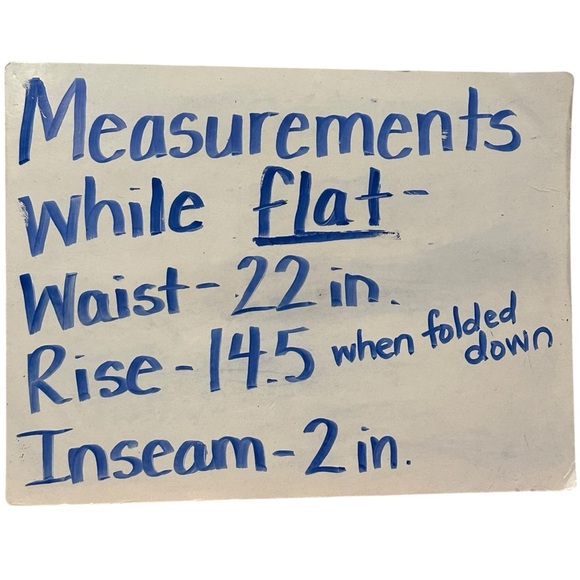 Measurements
while flat-
Waist- 22 in.
Rise - 14.5 when folded down
Inseam - 2 in.